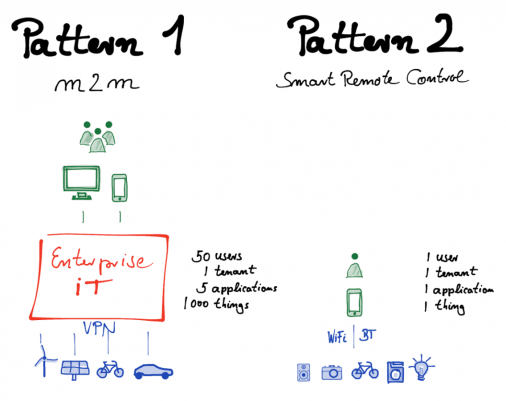 Pattern 1
m2m
Enterprise
iT
VPN
50 users
1 tenant
5 applications
1000 things
Pattern 2
Smart Remote Control
WiFi | BT
1 user
1 tenant
1 application
1 thing